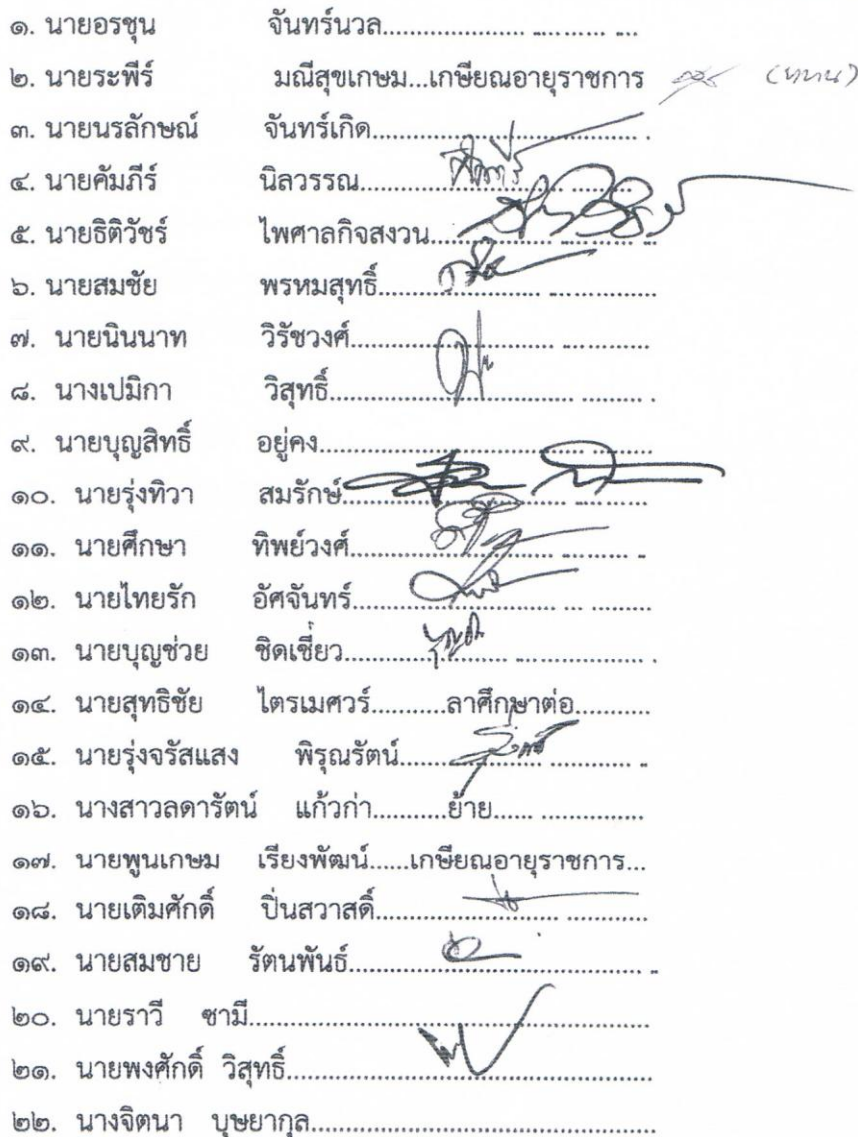 ๑. นายอรชุน จันทร์นวล..................... .... ........ ....
๒. นายระพีร์ มณีสุขเกษม...เกษียณอายุราชการ (แทน)
๓. นายนรลักษณ์ จันทร์เกิด.................................................. .
๔. นายคัมภีร์ นิลวรรณ.................................. ..........
๕. นายธิติวัชร์ ไพศาลกิจสงวน..................... ............. ..
๖. นายสมชัย พรหมสุทธิ์............................ ...................
๗. นายนินนาท วิรัชวงศ์................................... ...................
๘. นางเปมิกา วิสุทธิ์........................................ ........... .
๙. นายบุญสิทธิ์ อยู่คง....................................... ...............
๑๐. นายรุ่งทิวา สมรักษ์................................ ...............
๑๑. นายศึกษา ทิพย์วงศ์................................. ............ ..
๑๒. นายไทยรัก อัศจันทร์................................. ... ...........
๑๓. นายบุญช่วย ชิดเชี่ยว............................ .................... .
๑๔. นายสุทธิชัย ไตรเมศวร์..........ลาศึกษาต่อ............
๑๕. นายรุ่งจรัสแสง พิรุณรัตน์........................ ............ ..
๑๖. นางสาวลดารัตน์ แก้วก่า..........ย้าย...... ................
๑๗. นายพูนเกษม เรียงพัฒน์......เกษียณอายุราชการ...
๑๘. นายเติมศักดิ์ ปิ่นสวาสดิ์........................... .............
๑๙. นายสมชาย รัตนพันธ์............................................. ..
๒๐. นายราวี ซามี.......................................................
๒๑. นายพงศักดิ์ วิสุทธิ์..................................................
๒๒. นางจิตนา บุษยากุล..................................................